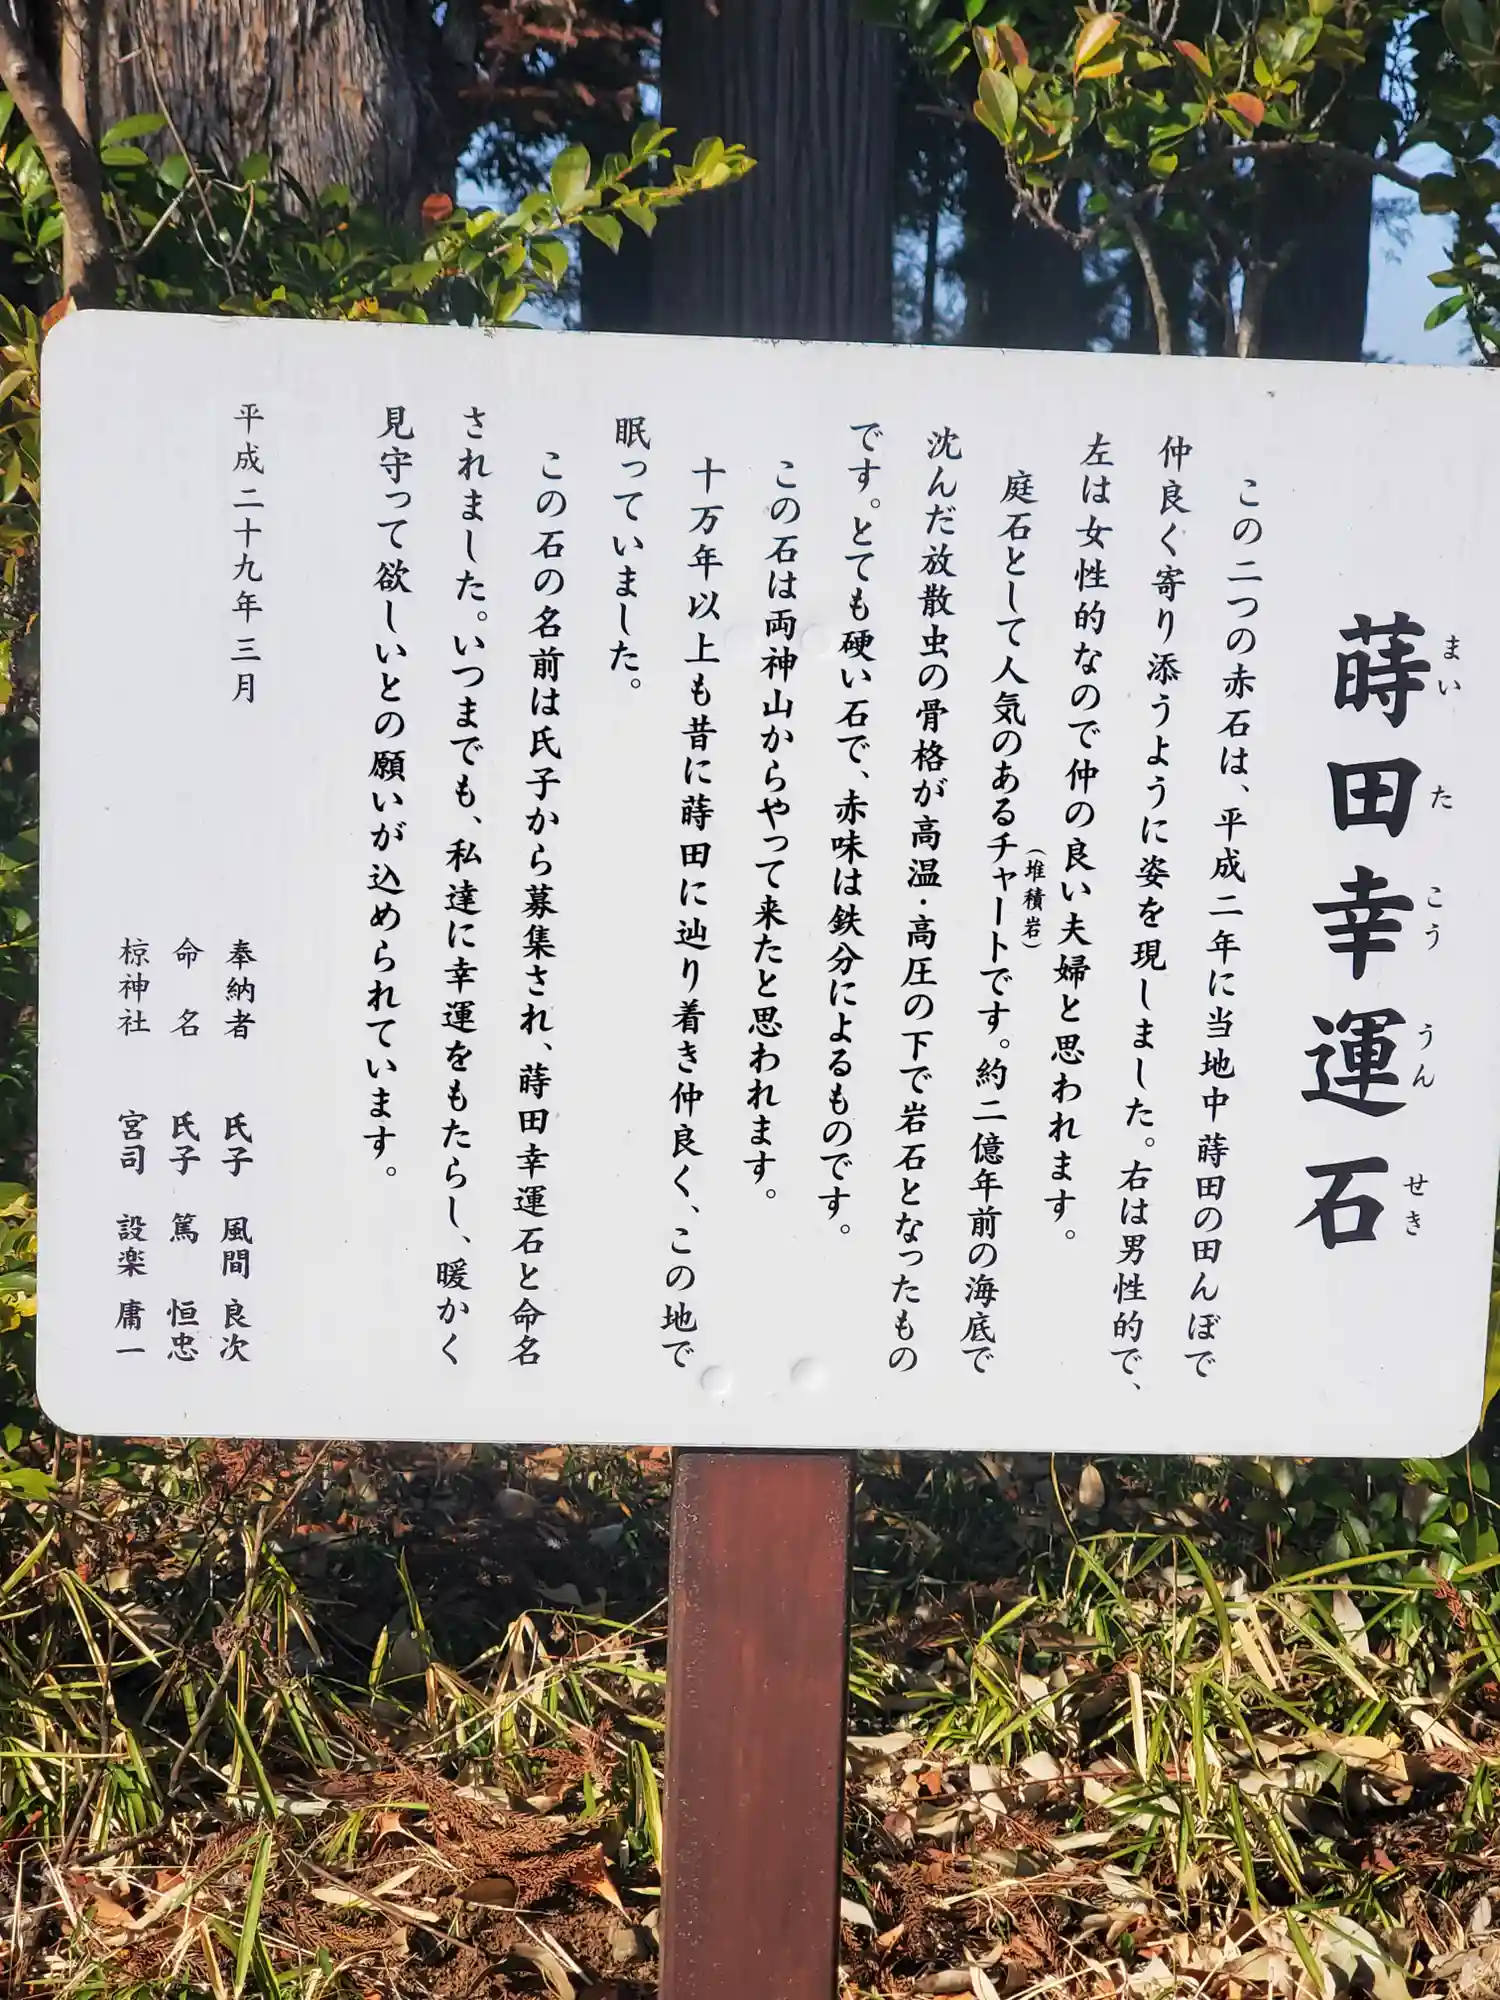 蒔田幸運石
まいたこううんせき
この二つの赤石は、平成二年に当地中蒔田の田んぼで
仲良く寄り添うように姿を現しました。右は男性的で、
左は女性的なので仲の良い夫婦と思われます。
庭石として人気のあるチャートです。約二億年前の海底で
（堆積岩）
沈んだ放散虫の骨格が高温・高圧の下で岩石となったもの
です。とても硬い石で、赤味は鉄分によるものです。
この石は両神山からやって来たと思われます。
十万年以上も昔に蒔田に辿り着き仲良く、この地で
眠っていました。
この石の名前は氏子から募集され、蒔田幸運石と命名
されました。いつまでも、私達に幸運をもたらし、暖かく
見守って欲しいとの願いが込められています。
平成二十九年三月
奉納者 氏子 風間 良次
命名 氏子 篤 恒忠
椋神社 宮司 設楽 庸一